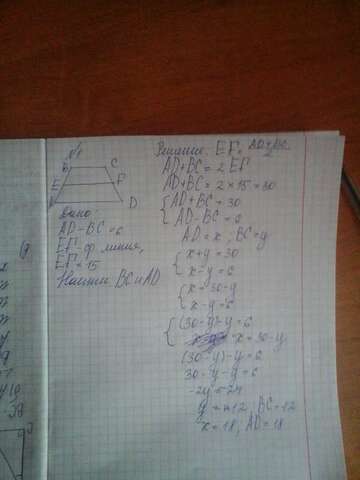 №1
B C
E F
D
Дано
AD-BC=6
EF-ср линия,
EF=15
Найти BC и AD
Решение: EF = AD+BC / 2
AD+BC=2EF
AD+BC=2×15=30
{ AD+BC=30
AD-BC=6
AD=x; BC=y
{ x+y=30
x-y=6
{ x=30-y
x-y=6
{ (30-y)-y=6
x=30-y
(30-y)-y=6
30-y-y=6
-2y=24
y=12; BC=12
x=18; AD=18